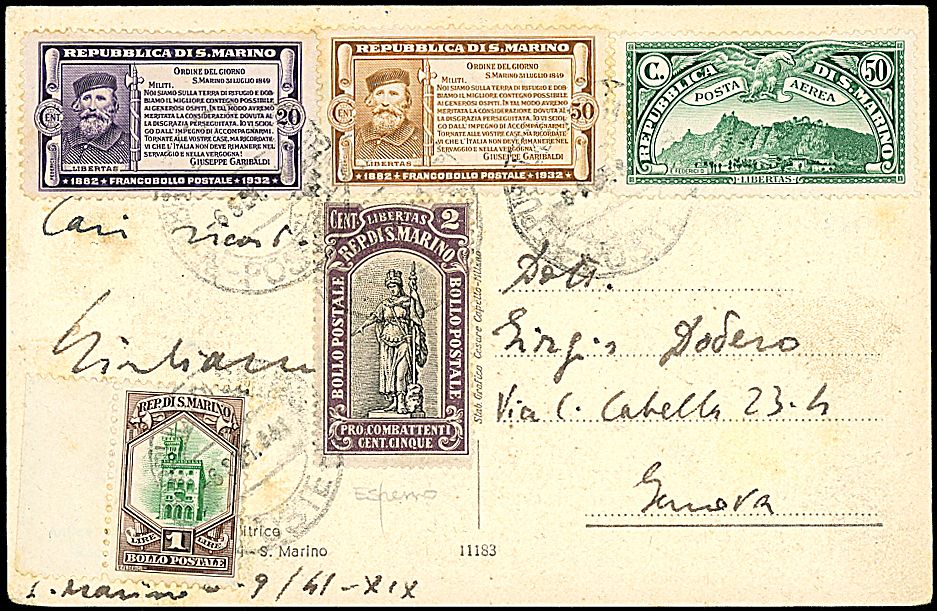 REPUBBLICA DI S. MARINO
ORDINE DEL GIORNO
S. MARINO 31 LUGLIO 1849
MILITI.
NOI SIAMO SULLA TERRA DI RIFUGIO E DOB-
BIAMO IL MIGLIORE CONTEGNO POSSIBILE
AI GENEROSI OSPITI. IN TAL MODO AVREMO
MERITATA LA CONSIDERAZIONE DOVUTA AL-
LA DISGRAZIA PERSEGUITATA. IO VI SCIOL-
GO DALL'IMPEGNO DI ACCOMPAGNARMI.
TORNATE ALLE VOSTRE CASE, MA RICORDATE-
VI CHE L'ITALIA NON DEVE RIMANERE NEL
SERVAGGIO E NELLA VERGOGNA!
GIUSEPPE GARIBALDI
CENT.
20
LIBERTAS
1882 FRANCOBOLLO POSTALE 1932
REPUBBLICA DI S. MARINO
ORDINE DEL GIORNO
S. MARINO 31 LUGLIO 1849
MILITI.
NOI SIAMO SULLA TERRA DI RIFUGIO E DOB-
BIAMO IL MIGLIORE CONTEGNO POSSIBILE
AI GENEROSI OSPITI. IN TAL MODO AVREMO
MERITATA LA CONSIDERAZIONE DOVUTA AL-
LA DISGRAZIA PERSEGUITATA. IO VI SCIOL-
GO DALL'IMPEGNO DI ACCOMPAGNARMI.
TORNATE ALLE VOSTRE CASE, MA RICORDATE-
VI CHE L'ITALIA NON DEVE RIMANERE NEL
SERVAGGIO E NELLA VERGOGNA!
GIUSEPPE GARIBALDI
CENT.
50
LIBERTAS
1882 FRANCOBOLLO POSTALE 1932
C. 50
REPUBBLICA DI S. MARINO
POSTA AEREA
LIBERTAS
Cari ricordi
Giuliano
CENT. LIBERTAS 2
REP. DI S. MARINO
BOLLO POSTALE
BOLLO POSTALE
PRO. COMBATTENTI
CENT. CINQUE
Stab. Grafico Cesare Capello-Milano
Dott.
Giorgio Dodero
Via C. Cabella 23-4
Genova
REP. DI S. MARINO
LIRE 1 LIRE
BOLLO POSTALE
Espresso
itrice
- S. Marino
11183
S. Marino 9/41-XIX